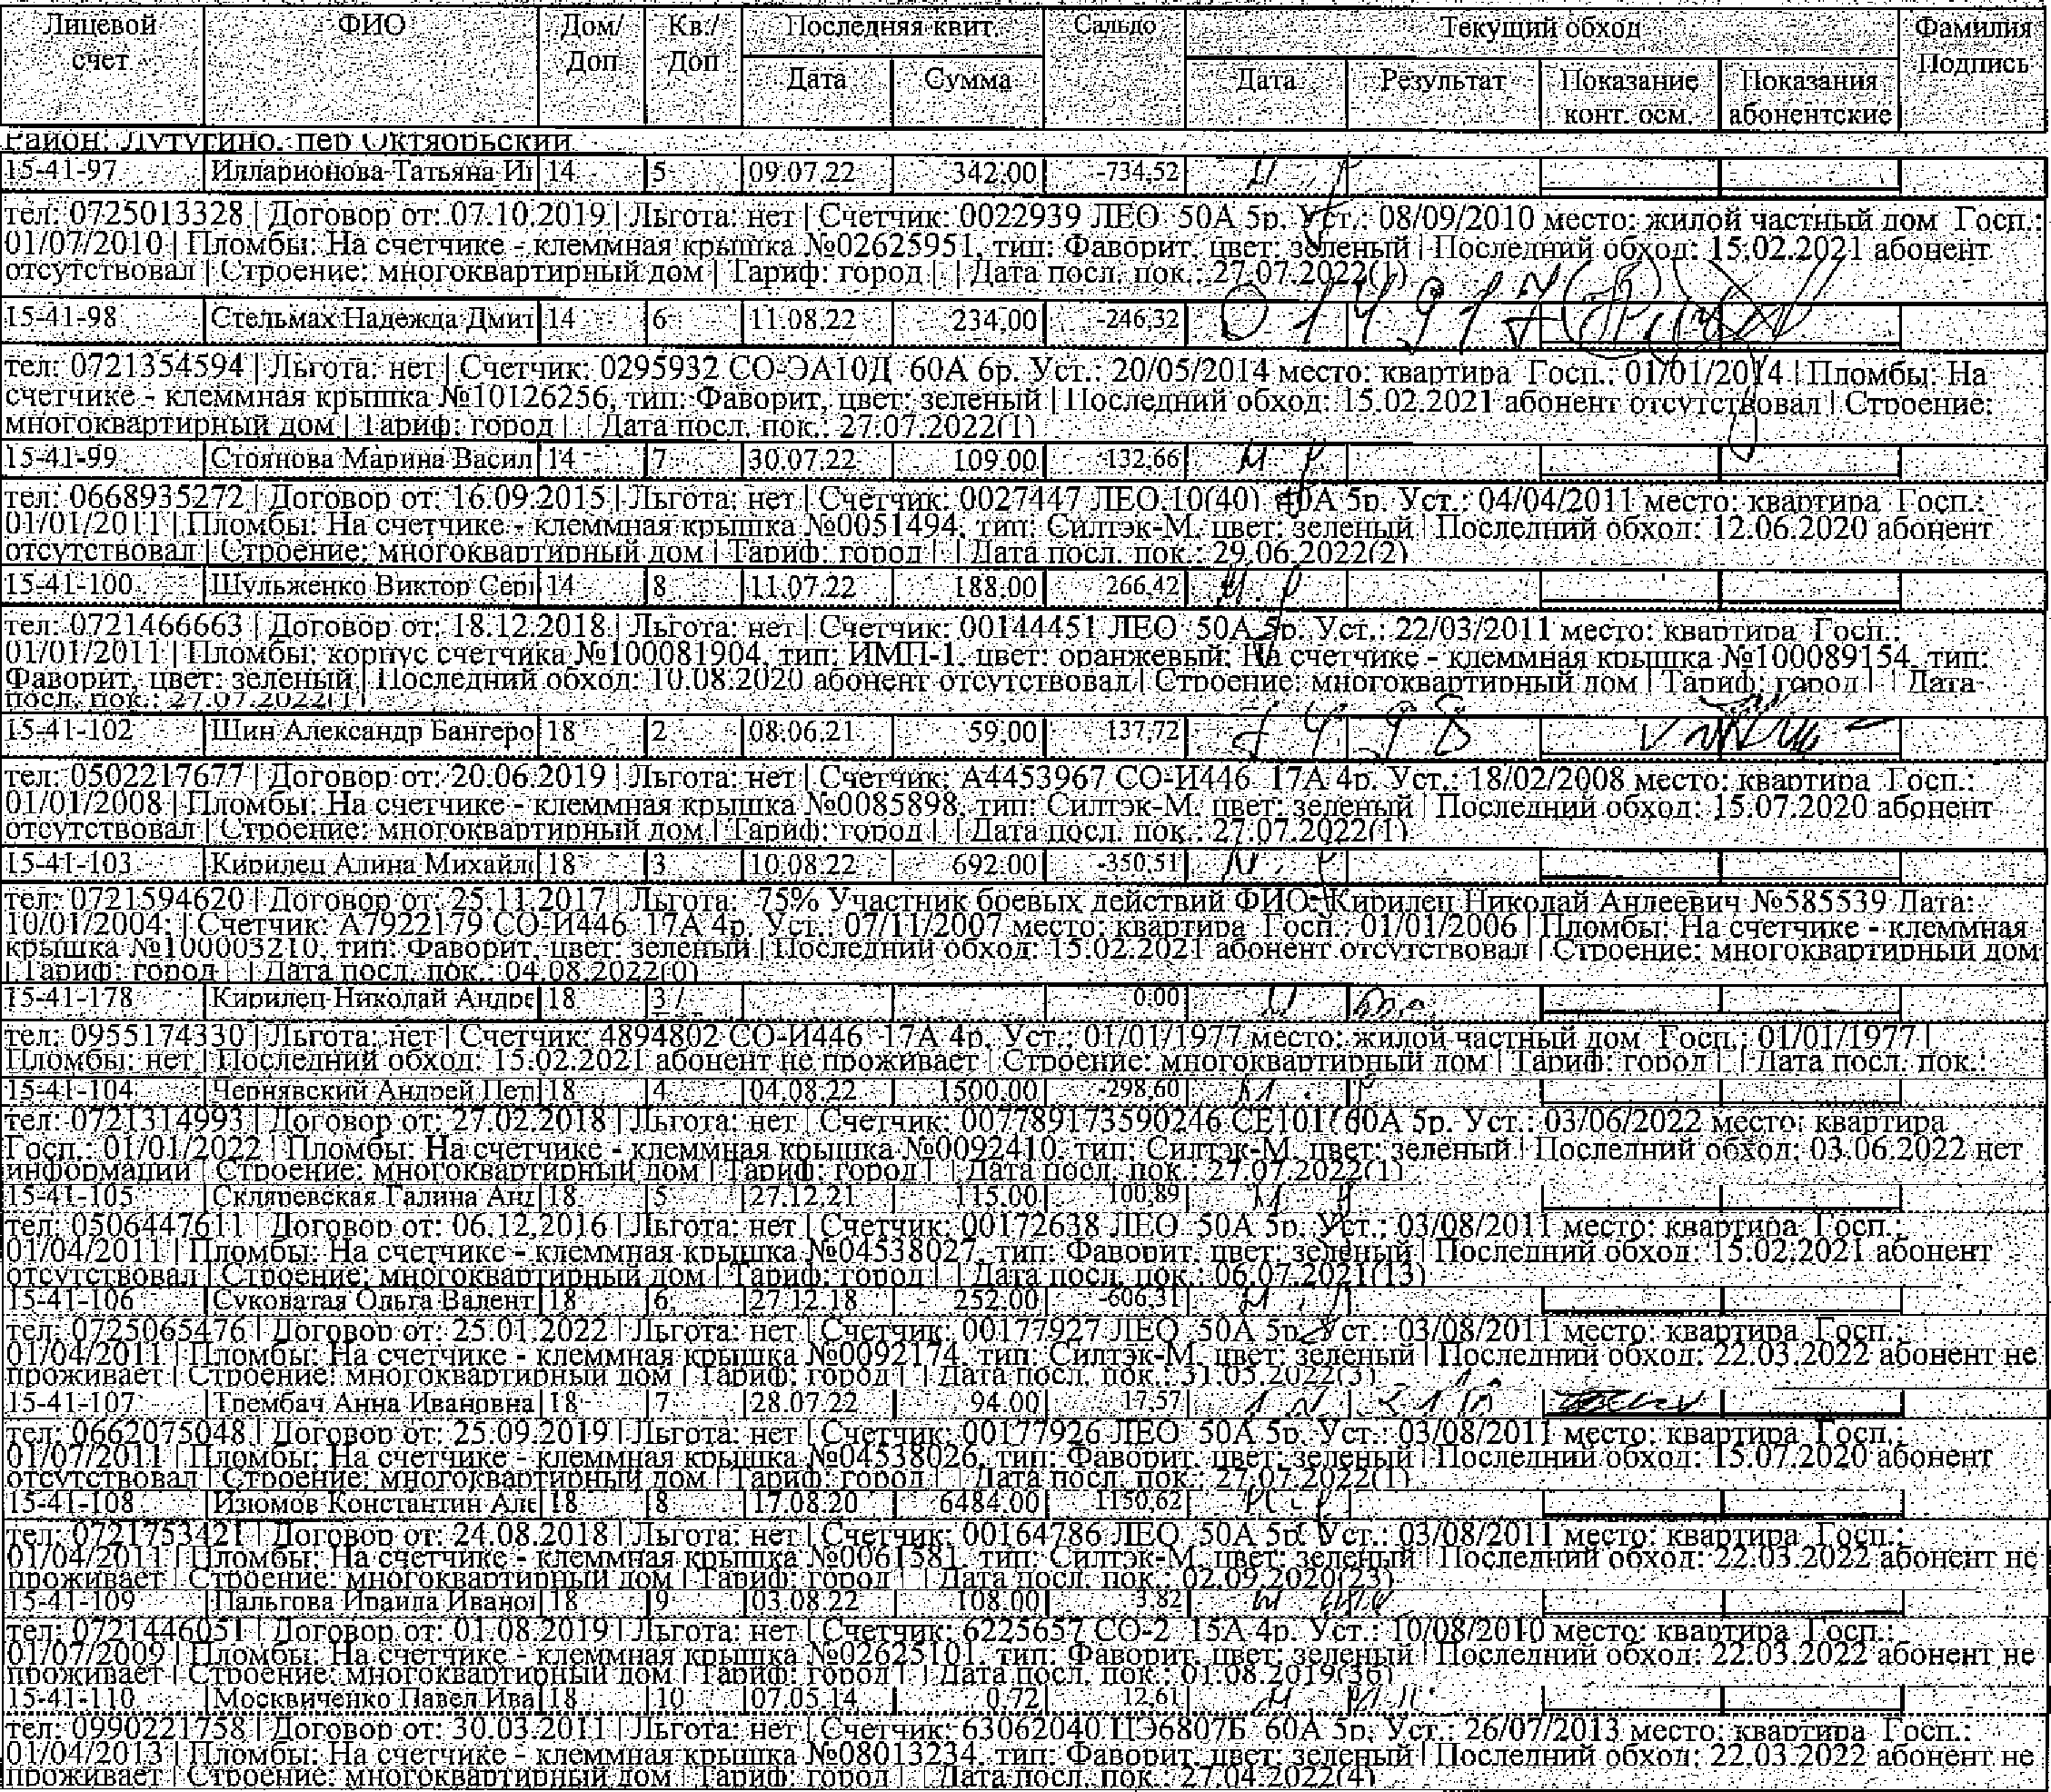 Лицевой счет ФИО Дом/Доп Кв./Доп Последняя квит. Сальдо Текущий обход Фамилия Подпись
Дата Сумма Дата Результат Показание конт. осм. Показания абонентские
Район: Лутугино. пер Октяорьский
15-41-97 Илларионова Татьяна Иг 14 5 09.07.22 342.00 -734,52
тел: 0725013328 | Договор от: 07.10.2019 | Льгота: нет | Счетчик: 0022939 ЛЕО 50А 5р. Уст.: 08/09/2010 место: жилой частный дом Госп.:
01/07/2010 | Пломбы: На счетчике - клеммная крышка №02625951, тип: Фаворит, цвет: зеленый | Последний обход: 15.02.2021 абонент
отсутствовал | Строение: многоквартирный дом | Тариф: город | | Дата посл. пок.: 27.07.2022(1)
15-41-98 Стельмах Надежда Дмит 14 6 11.08.22 234,00 -246,32 014917
тел: 0721354594 | Льгота: нет | Счетчик: 0295932 СО-ЭА10Д 60А 6р. Уст.: 20/05/2014 место: квартира Госп.: 01/01/2014 | Пломбы: На
счетчике - клеммная крышка №10126256, тип: Фаворит, цвет: зеленый | Последний обход: 15.02.2021 абонент отсутствовал | Строение:
многоквартирный дом | Тариф: город | | Дата посл. пок.: 27.07.2022(1)
15-41-99 Стоянова Марина Васил 14 7 30.07.22 109.00 132,66
тел: 0668935272 | Договор от: 16.09.2015 | Льгота: нет | Счетчик: 0027447 ЛЕО 10(40) 40А 5р. Уст.: 04/04/2011 место: квартира Госп.:
01/01/2011 | Пломбы: На счетчике - клеммная крышка №0051494, тип: Силтэк-М, цвет: зеленый | Последний обход: 12.06.2020 абонент
отсутствовал | Строение: многоквартирный дом | Тариф: город | | Дата посл. пок.: 29.06.2022(2)
15-41-100 Шульженко Виктор Серг 14 8 11.07.22 188.00 266,42
тел: 0721466663 | Договор от: 18.12.2018 | Льгота: нет | Счетчик: 00144451 ЛЕО 50А 5р. Уст.: 22/03/2011 место: квартира Госп.:
01/01/2011 | Пломбы: корпус счетчика №100081904, тип: ИМП-1, цвет: оранжевый; На счетчике - клеммная крышка №100089154, тип:
Фаворит, цвет: зеленый | Последний обход: 10.08.2020 абонент отсутствовал | Строение: многоквартирный дом | Тариф: город | | Дата
посл. пок.: 27.07.2022(1)
15-41-102 Шин Александр Бангеро 18 2 08.06.21 59,00 137,72 7498
тел: 0502217677 | Договор от: 20.06.2019 | Льгота: нет | Счетчик: А4453967 СО-И446 17А 4р. Уст.: 18/02/2008 место: квартира Госп.:
01/01/2008 | Пломбы: На счетчике - клеммная крышка №0085898, тип: Силтэк-М, цвет: зеленый | Последний обход: 15.07.2020 абонент
отсутствовал | Строение: многоквартирный дом | Тариф: город | | Дата посл. пок.: 27.07.2022(1)
15-41-103 Кирилец Алина Михайло 18 3 10.08.22 692.00 -350,51
тел: 0721594620 | Договор от: 25.11.2017 | Льгота: -75% Участник боевых действий ФИО: Кирилец Николай Андеевич №585539 Дата:
10/01/2004; | Счетчик: А7922179 СО-И446 17А 4р. Уст.: 07/11/2007 место: квартира Госп.: 01/01/2006 | Пломбы: На счетчике - клеммная
крышка №100003210, тип: Фаворит, цвет: зеленый | Последний обход: 15.02.2021 абонент отсутствовал | Строение: многоквартирный дом
| Тариф: город | | Дата посл. пок.: 04.08.2022(0)
15-41-178 Кирилец Николай Андре 18 3 / 0.00
тел: 0955174330 | Льгота: нет | Счетчик: 4894802 СО-И446 17А 4р. Уст.: 01/01/1977 место: жилой частный дом Госп.: 01/01/1977 |
Пломбы: нет | Последний обход: 15.02.2021 абонент не проживает | Строение: многоквартирный дом | Тариф: город | | Дата посл. пок.:
15-41-104 Чернявский Андрей Пет 18 4 04.08.22 1500.00 -298,60
тел: 0721314993 | Договор от: 27.02.2018 | Льгота: нет | Счетчик: 007789173590246 СЕ101 60А 5р. Уст.: 03/06/2022 место: квартира
Госп.: 01/01/2022 | Пломбы: На счетчике - клеммная крышка №0092410, тип: Силтэк-М, цвет: зеленый | Последний обход: 03.06.2022 нет
информации | Строение: многоквартирный дом | Тариф: город | | Дата посл. пок.: 27.07.2022(1)
15-41-105 Скляревская Галина Анд 18 5 27.12.21 115.00 100,89
тел: 0506447611 | Договор от: 06.12.2016 | Льгота: нет | Счетчик: 00172638 ЛЕО 50А 5р. Уст.: 03/08/2011 место: квартира Госп.:
01/04/2011 | Пломбы: На счетчике - клеммная крышка №04538027, тип: Фаворит, цвет: зеленый | Последний обход: 15.02.2021 абонент
отсутствовал | Строение: многоквартирный дом | Тариф: город | | Дата посл. пок.: 06.07.2021(13)
15-41-106 Суковатая Ольга Валент 18 6 27.12.18 252.00 -606,31
тел: 0725065476 | Договор от: 25.01.2022 | Льгота: нет | Счетчик: 00177927 ЛЕО 50А 5р. Уст.: 03/08/2011 место: квартира Госп.:
01/04/2011 | Пломбы: На счетчике - клеммная крышка №0092174, тип: Силтэк-М, цвет: зеленый | Последний обход: 22.03.2022 абонент не
проживает | Строение: многоквартирный дом | Тариф: город | | Дата посл. пок.: 31.05.2022(3)
15-41-107 Трембач Анна Ивановна 18 7 28.07.22 94.00 17,57
тел: 0662075048 | Договор от: 25.09.2019 | Льгота: нет | Счетчик: 00177926 ЛЕО 50А 5р. Уст.: 03/08/2011 место: квартира Госп.:
01/07/2011 | Пломбы: На счетчике - клеммная крышка №04538026, тип: Фаворит, цвет: зеленый | Последний обход: 15.07.2020 абонент
отсутствовал | Строение: многоквартирный дом | Тариф: город | | Дата посл. пок.: 27.07.2022(1)
15-41-108 Изюмов Константин Але 18 8 17.08.20 6484.00 1150,62
тел: 0721753421 | Договор от: 24.08.2018 | Льгота: нет | Счетчик: 00164786 ЛЕО 50А 5р. Уст.: 03/08/2011 место: квартира Госп.:
01/04/2011 | Пломбы: На счетчике - клеммная крышка №0061581, тип: Силтэк-М, цвет: зеленый | Последний обход: 22.03.2022 абонент не
проживает | Строение: многоквартирный дом | Тариф: город | | Дата посл. пок.: 02.09.2020(23)
15-41-109 Пальгова Ираида Ивано 18 9 03.08.22 108.00 3,82
тел: 0721446051 | Договор от: 01.08.2019 | Льгота: нет | Счетчик: 6225657 СО-2 15А 4р. Уст.: 10/08/2010 место: квартира Госп.:
01/07/2009 | Пломбы: На счетчике - клеммная крышка №02625101, тип: Фаворит, цвет: зеленый | Последний обход: 22.03.2022 абонент не
проживает | Строение: многоквартирный дом | Тариф: город | | Дата посл. пок.: 01.08.2019(36)
15-41-110 Москвиченко Павел Ива 18 10 07.05.14 0.72 12,61
тел: 0990221758 | Договор от: 30.03.2011 | Льгота: нет | Счетчик: 63062040 ЦЭ6807Б 60А 5р. Уст.: 26/07/2013 место: квартира Госп.:
01/04/2013 | Пломбы: На счетчике - клеммная крышка №08013234, тип: Фаворит, цвет: зеленый | Последний обход: 22.03.2022 абонент не
проживает | Строение: многоквартирный дом | Тариф: город | | Дата посл. пок.: 27.04.2022(4)